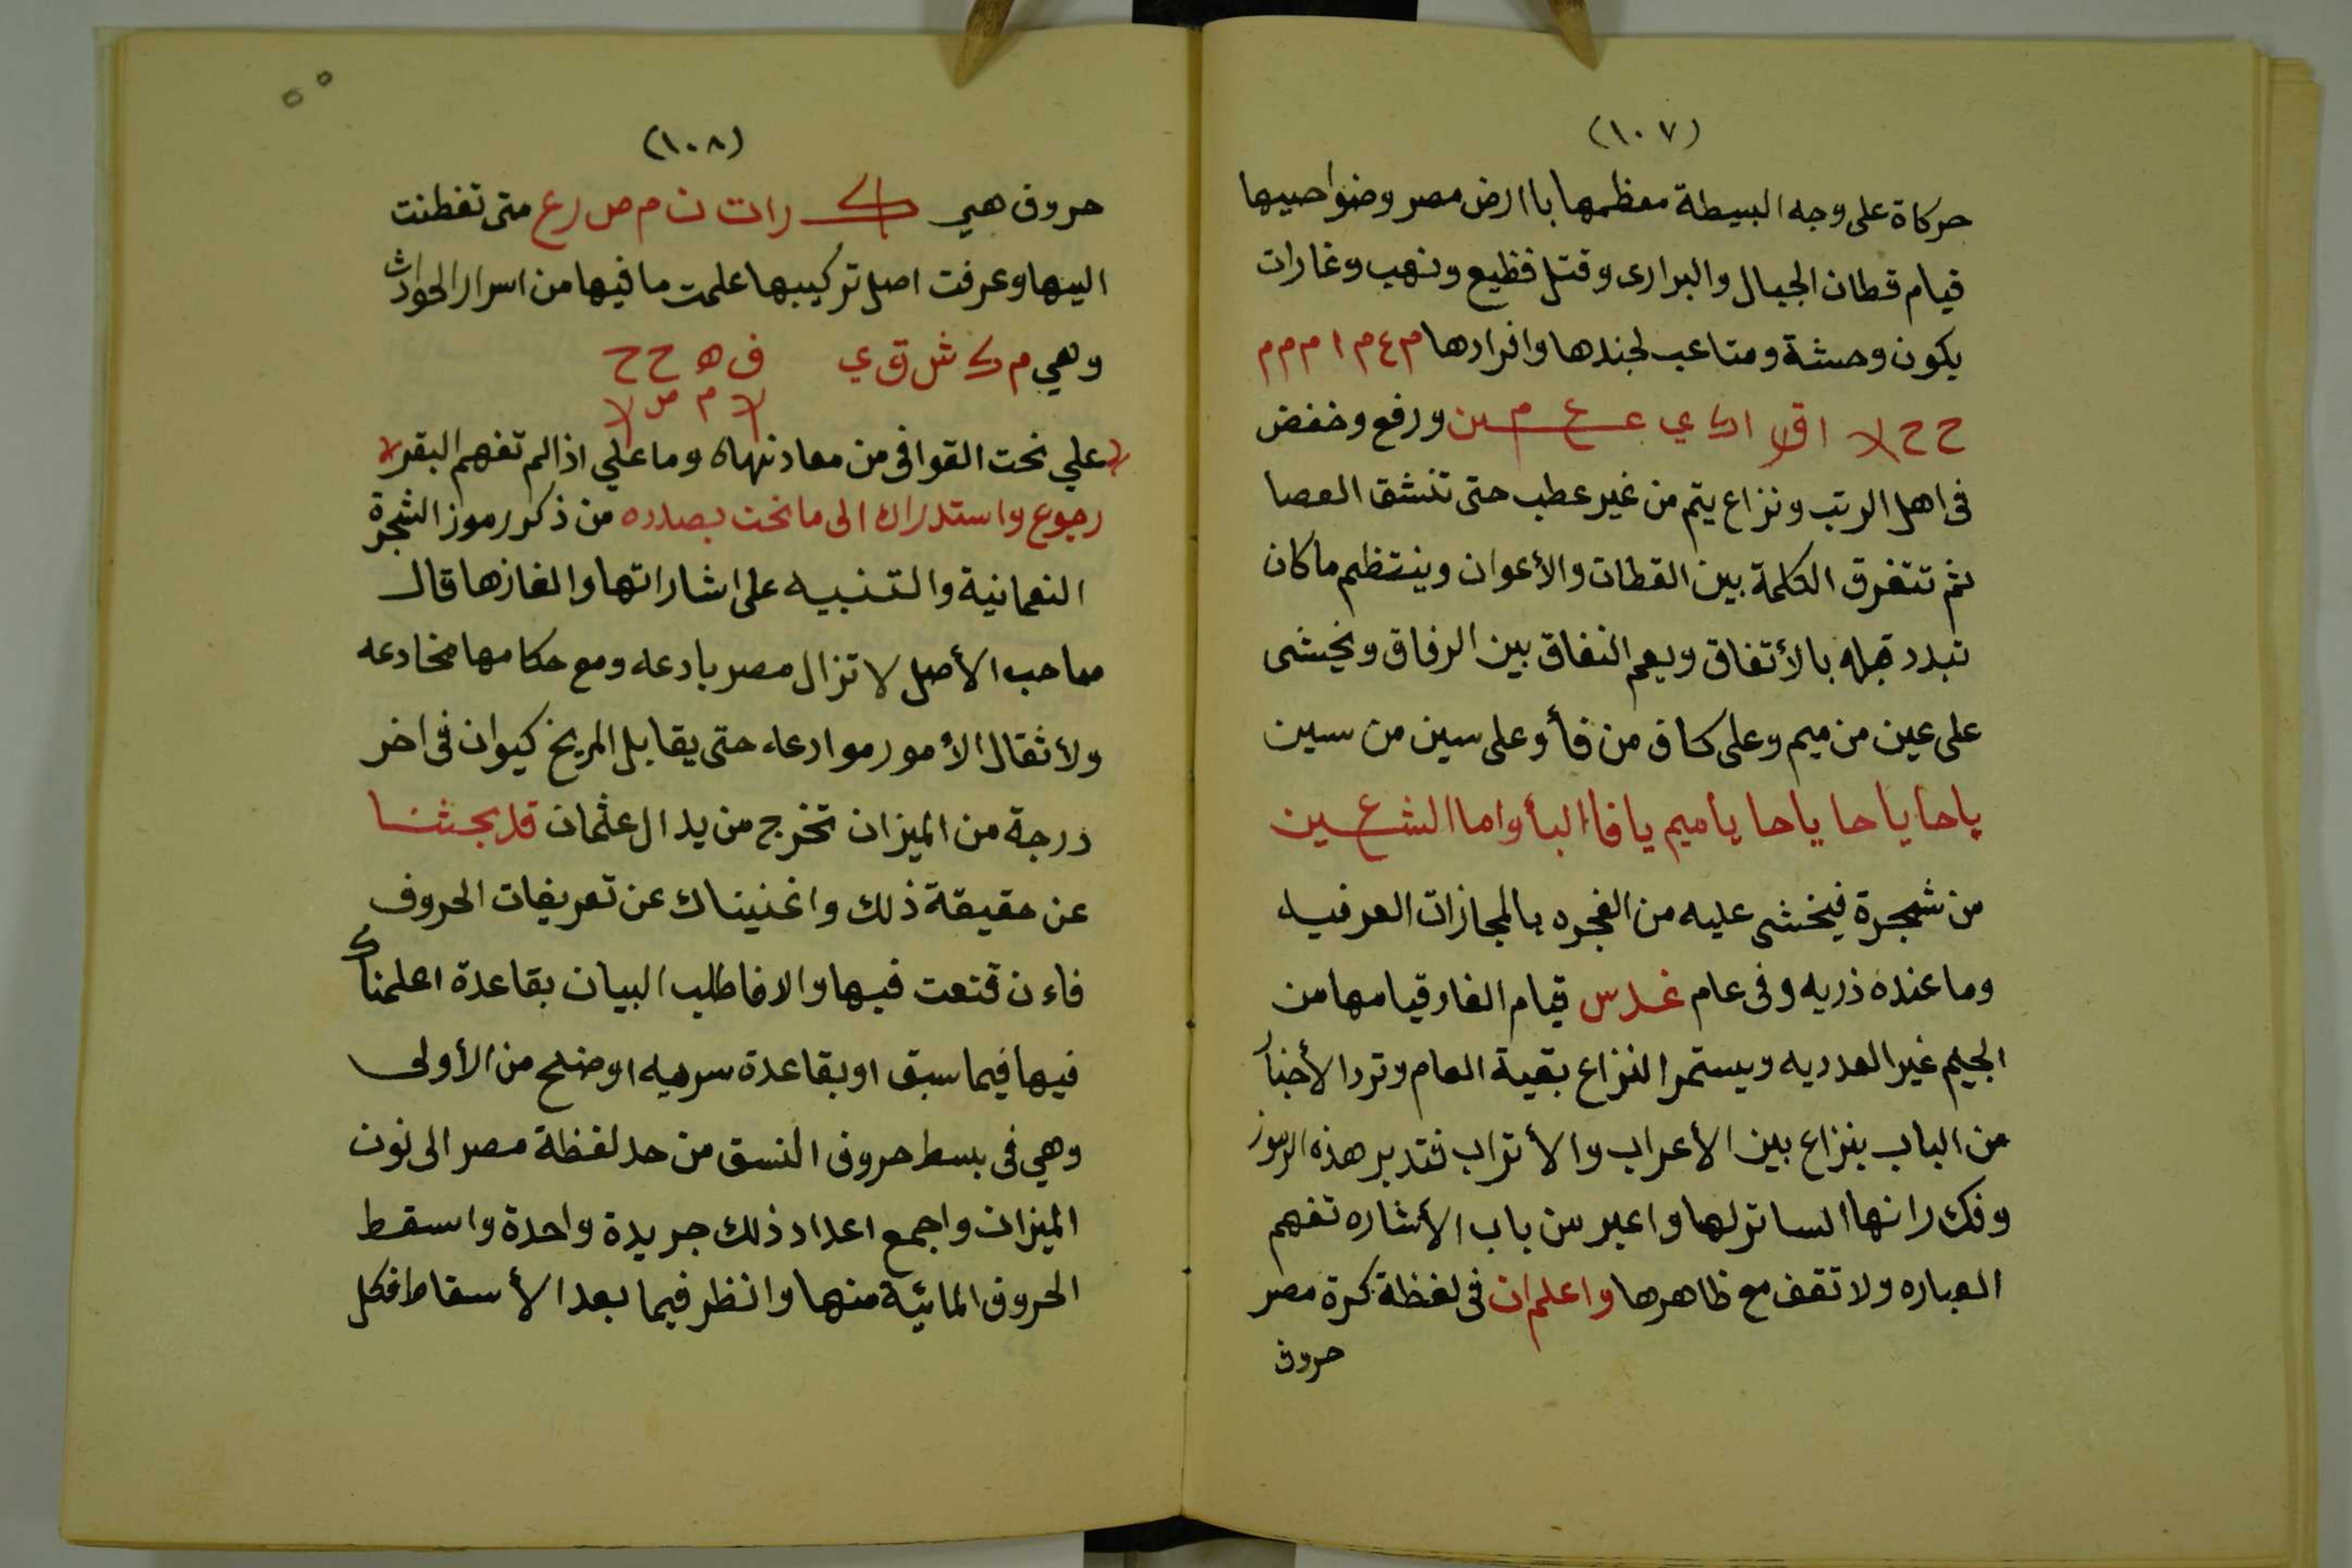 (١٠٧)
حركاة على وجه البسيطة معظمها باارض مصر وضواحيها
قيام قطان الجبال والبرارى وقتل فظيع ونهب وغارات
يكون وحشة ومتاعب لجندها وافرادها م ع م ا م م م
ح ح لا اق اك ي ع ع م ين ورفع وخفض
فى اهل الرتب ونزاع يتم من غير عطب حتى تنشق العصا
ثم تتفرق الكلمة بين القطان والأعوان وينتظم ماكان
تبدد قبله بالأتفاق ويعم النفاق بين الرفاق ويخشى
على عين من ميم وعلى كاف من فأ وعلى سين من سين
ياحا ياحا ياحا ياميم يافا البأ واما الشعين
من شجرة فيخشى عليه من الفجره بالمجازات العرفيه
وما عنده ذريه وفى عام غدس قيام الغار قيامها من
الجيم غير العدديه ويستمر النزاع بقية العام وترد الأخبا
من الباب بنزاع بين الأعراب والأتراب فتدبر هذه الرموز
وفك رانها الساتر لها واعبر من باب الأشاره تفهم
العباره ولا تقف مع ظاهرها واعلم ان فى لفظة كرة مصر
حروف
(١٠٨)
حروف هي ك رات ن م ص ر ع متى تفطنت
اليها وعرفت اصل تركيبها علمت ما فيها من اسرار الحوادث
وهي م ك ش ق ي ف ه ح ح
لا م ص لا
علي نحت القوافى من معادنهاه وما علي اذا لم تفهم البقر
رجوع واستدراك الى ما نحن بصدده من ذكر رموز الشجرة
النعمانية والتنبيه على اشاراتها والغازها قال
صاحب الأصل لا تزال مصر بادعه ومع حكامها مخادعه
ولأثقال الأمور موادعه حتى يقابل المريخ كيوان فى اخر
درجة من الميزان تخرج من يد ال عثمان قد بحثنا
عن حقيقة ذلك واغنيناك عن تعريفات الحروف
فاءن قنعت فيها والا فاطلب البيان بقاعدة اعلمناك
فيها فيما سبق او بقاعدة سرميه اوضلح من الأولى
وهي فى بسط حروف النسق من حد لفظة مصر الى نون
الميزان واجمع اعداد ذلك جريدة واحدة واسقط
الحروف المائية منها وانظر فيما بعد الأسقاط فكل